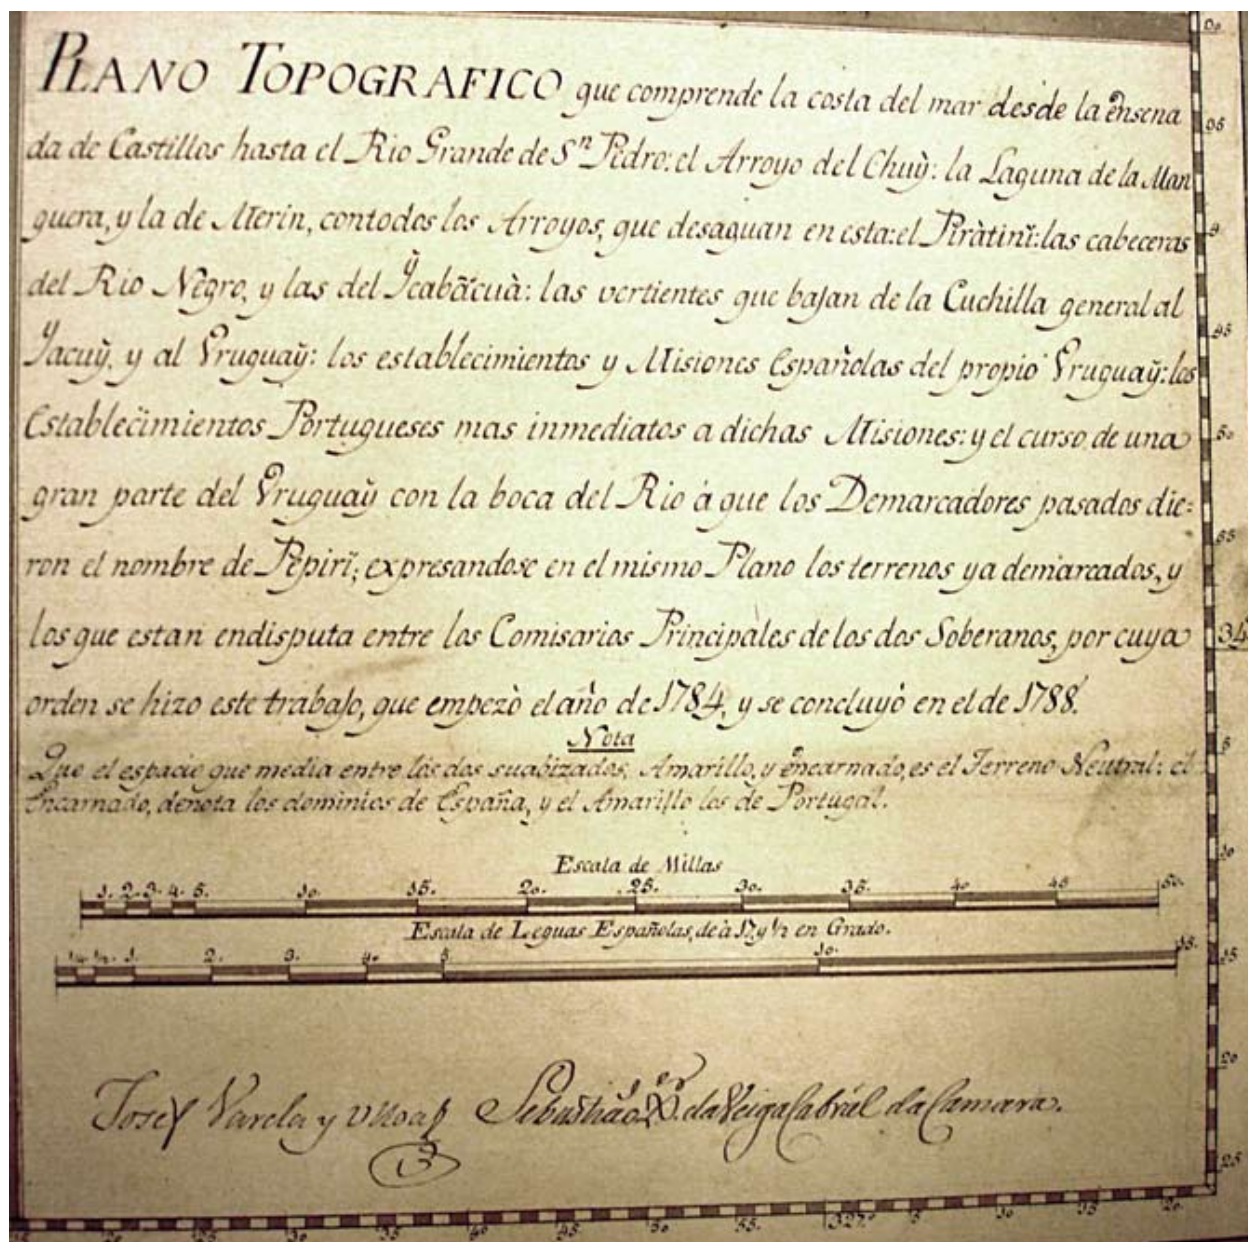 PLANO TOPOGRAFICO que comprende la costa del mar desde la ensena
da de Castillos hasta el Rio Grande de Sⁿ Pedro: el Arroyo del Chuỳ: la Laguna de la Man
guera, y la de Merin, con todos los Arroyos, que desaguan en esta: el Piràtinĩ: las cabeceras
del Rio Negro, y las del Ỳcabãcuà: las vertientes que bajan de la Cuchilla general al
Yacuỳ, y al Vruguaỳ: los establecimientos y Misiones Españolas del propio Vruguaỳ: los
Establecimientos Portugueses mas inmediatos a dichas Misiones: y el curso de una
gran parte del Vruguaỳ con la boca del Rio à que los Demarcadores pasados die=
ron el nombre de Pepirĩ; expresandose en el mismo Plano los terrenos ya demarcados, y
los que estan en disputa entre los Comisarios Principales de los dos Soberanos, por cuya
orden se hizo este trabajo, que empezò el año de 1784, y se concluyò en el de 1788.
Nota
Que el espacio que media entre los dos suabizados, Amarillo, y Encarnado, es el Terreno Neutral: el
Encarnado, denota los dominios de España, y el Amarillo los de Portugal.
Escala de Millas
1. 2. 3. 4. 5. 10. 15. 20. 25. 30. 35. 40 45 50.
Escala de Leguas Españolas, de à 17 y ½ en Grado.
¼ ½ 1. 2. 3. 4. 5 10. 15.
Josef Varela y Ulloa Sebastião X.ᵉʳ da Veiga Cabral da Camara.
34
327.